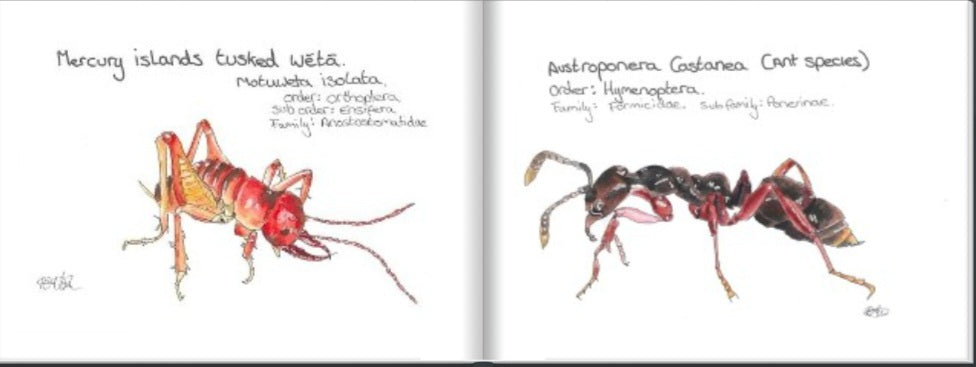 Mercury islands tusked wētā.
Motuweta isolata.
order: orthoptera
sub order: Ensifera
Family: Anostostomatidae
Austroponera Castanea (Ant species)
order: Hymenoptera.
Family: Formicidae. Subfamily: Ponerinae.